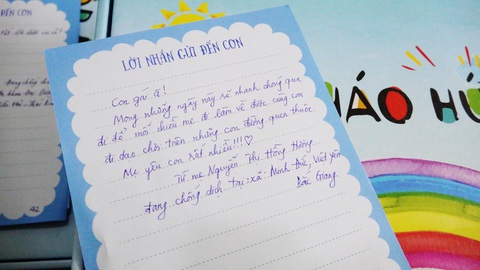 ĐẾN CON
LỜI NHẮN GỬI ĐẾN CON
Con gái à!
Mong những ngày này sẽ nhanh chóng qua
đi để mỗi chiều mẹ đi làm về được cùng con
đi dạo chơi trên những con đường quen thuộc
Mẹ yêu con rất nhiều!!!♡
Từ mẹ Nguyễn Thị Hồng
đang chống dịch tại: xã Minh Đức, Việt Yên
Bắc Giang.
HÁO HỨ
42